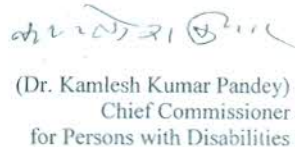 (Dr. Kamlesh Kumar Pandey)
Chief Commissioner
for Persons with Disabilities